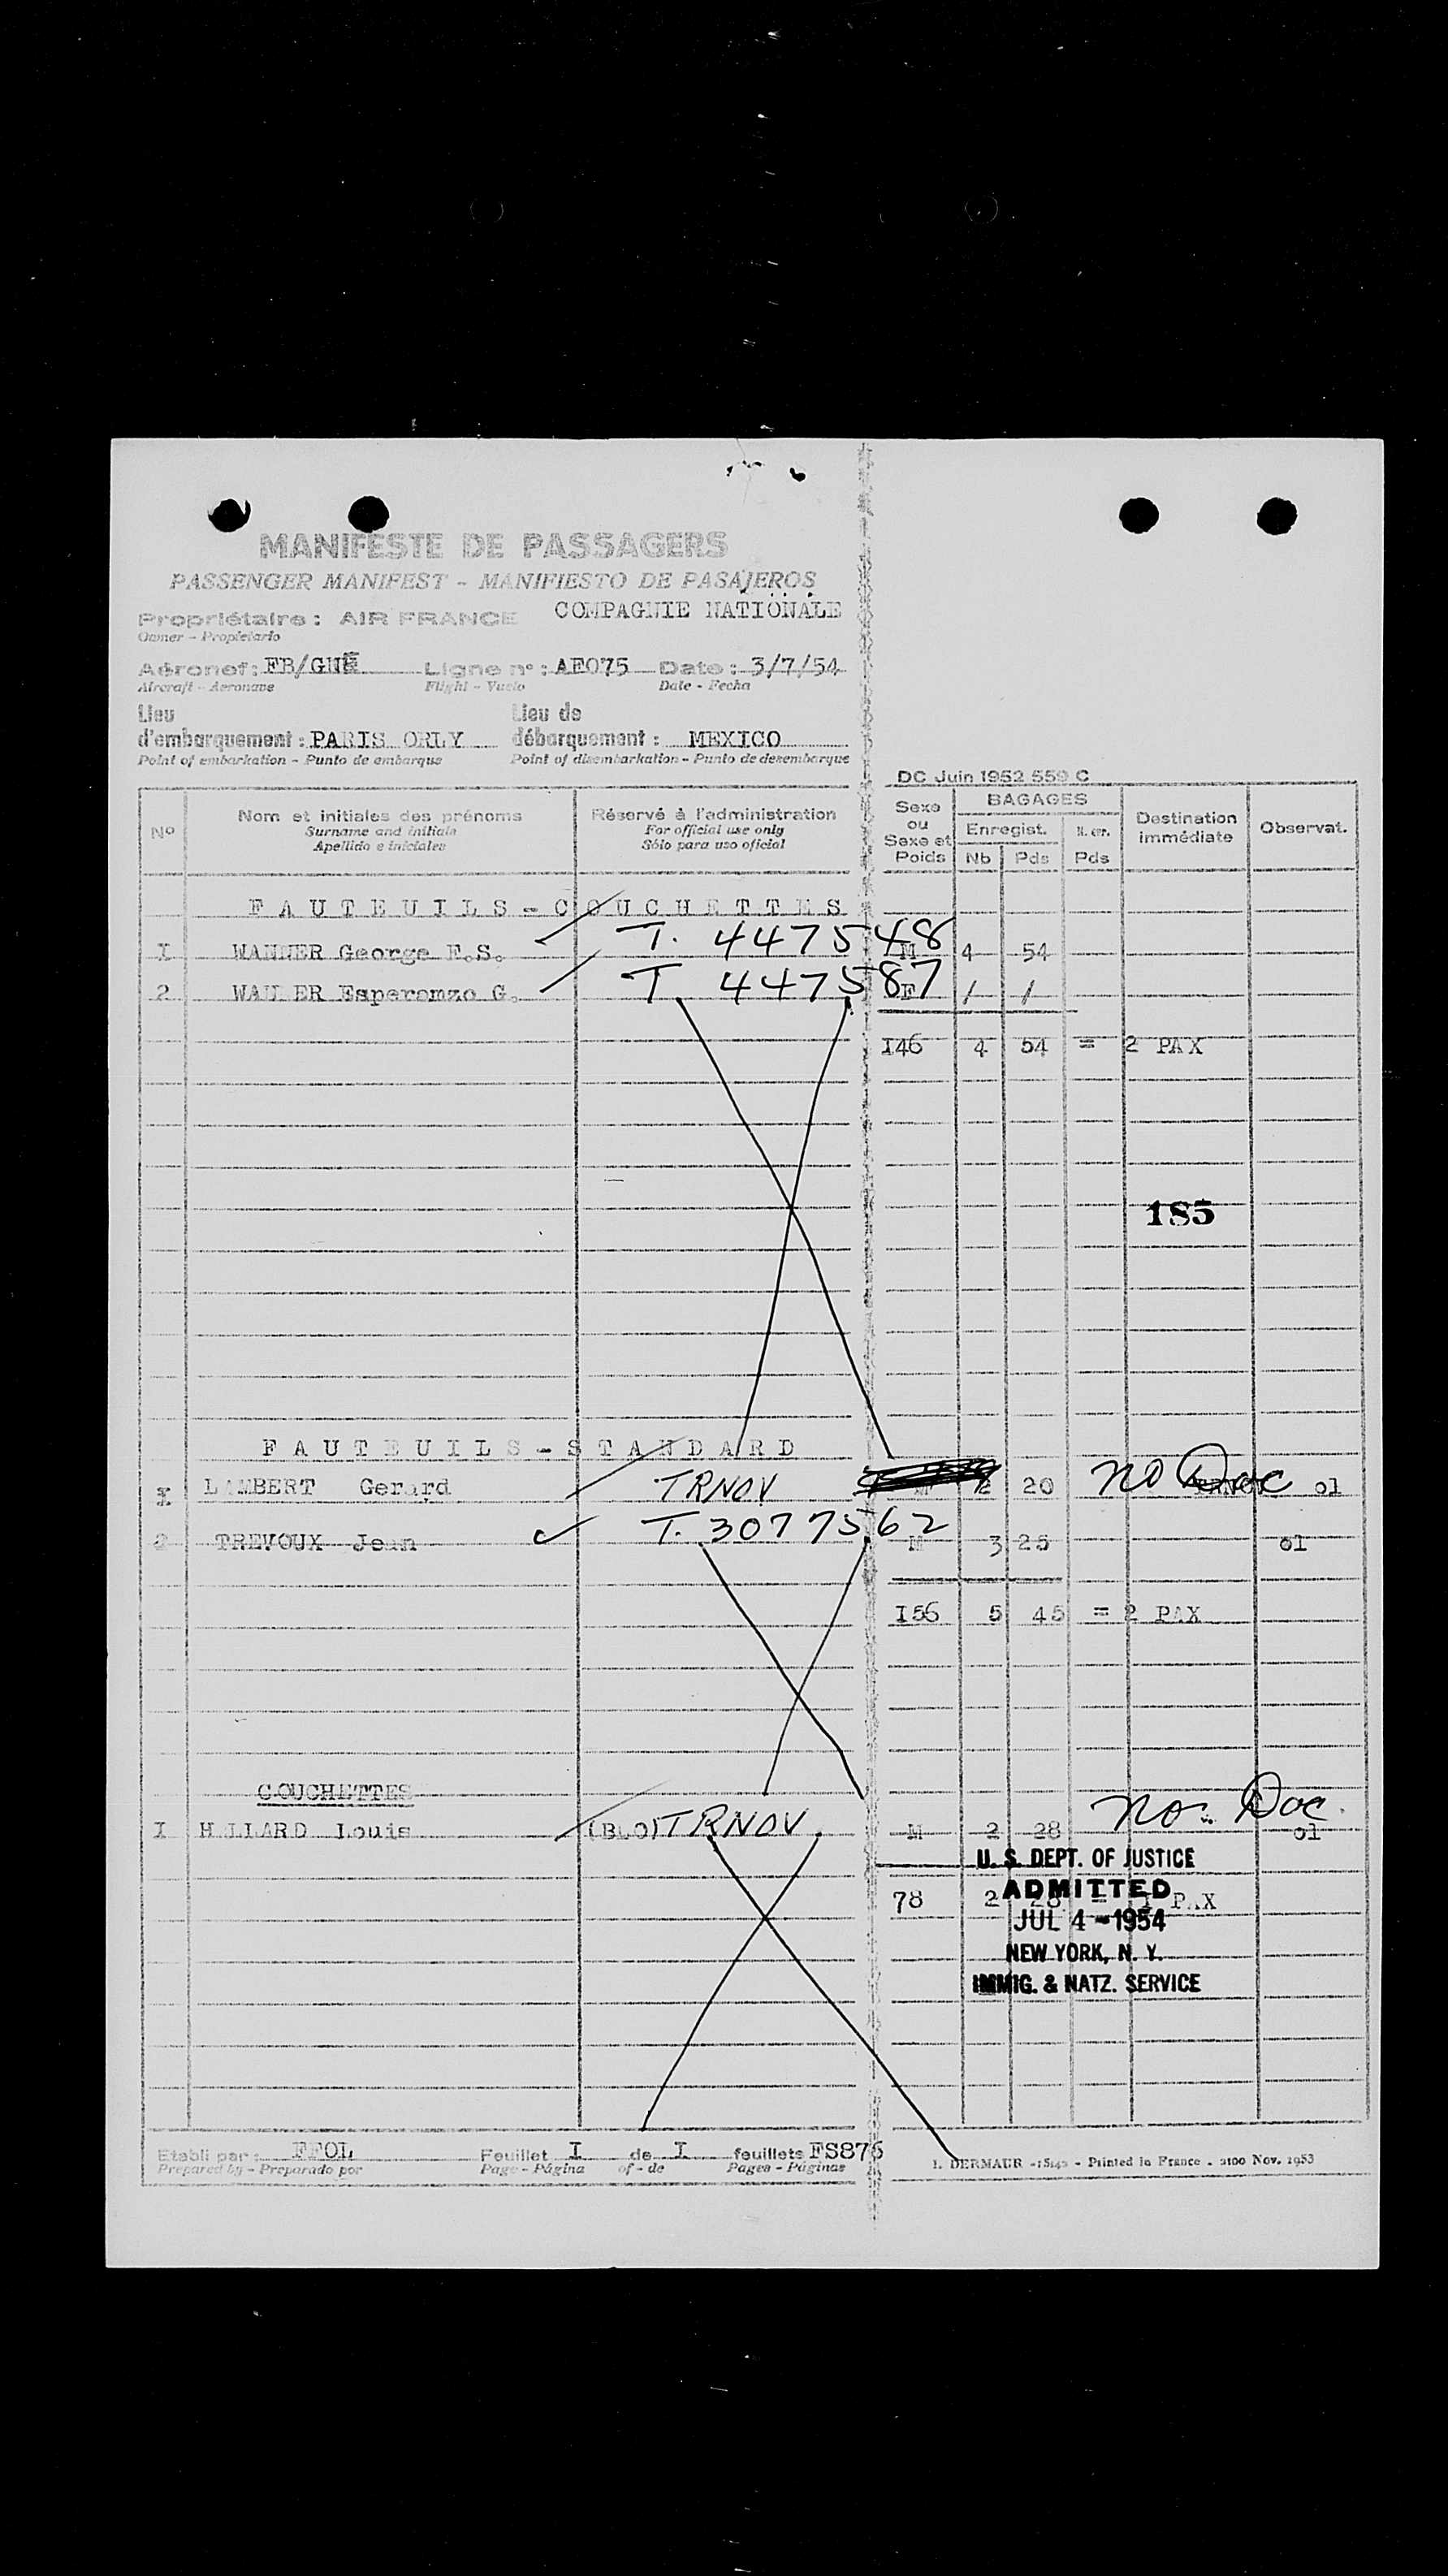 MANIFESTE DE PASSAGERS
PASSENGER MANIFEST - MANIFIESTO DE PASAJEROS
Propriétaire : AIR FRANCE COMPAGNIE NATIONALE
Owner - Propietario
Aéronef : Ligne n° : AF075 Date : 3/7/54
Aircraft - Aeronave Flight - Vuelo Date - Fecha
Lieu Lieu de
d'embarquement : PARIS ORLY débarquement : MEXICO
Point of embarkation - Punto de embarque Point of disembarkation - Punto de desembarque
DC Juin 1952 559 C
N° Nom et initiales des prénoms Réservé à l'administration Sexe ou Sexe et Poids BAGAGES Destination immédiate Observat.
Surname and initials For official use only Enregist. N. er.
Apellido e iniciales Sólo para uso oficial Nb Pds Pds
FAUTEUILS-COUCHETTES
I George F.S. T. 447548 M 4 54
2 G. T. 447587 F / /
I46 4 54 = 2 PAX
185
FAUTEUILS-STANDARD
I LAMBERT Gerard TRNOV M 20 no Doc ol
2 TREVOUX Jean T. 3077562 M 3 25 ol
I56 5 45 = 2 PAX
COUCHETTES
I Louis TRNOV M 2 28 no Doc. ol
U. S. DEPT. OF JUSTICE
78 2 28 = I PAX
ADMITTED
JUL 4 - 1954
NEW YORK, N. Y.
IMMIG. & NATZ. SERVICE
Etabli par : Feuillet I de I feuillets FS876
Prepared by - Preparado por Page - Página of - de Pages - Páginas
I. DERMAUR - - Printed in France - 2100 Nov. 1953